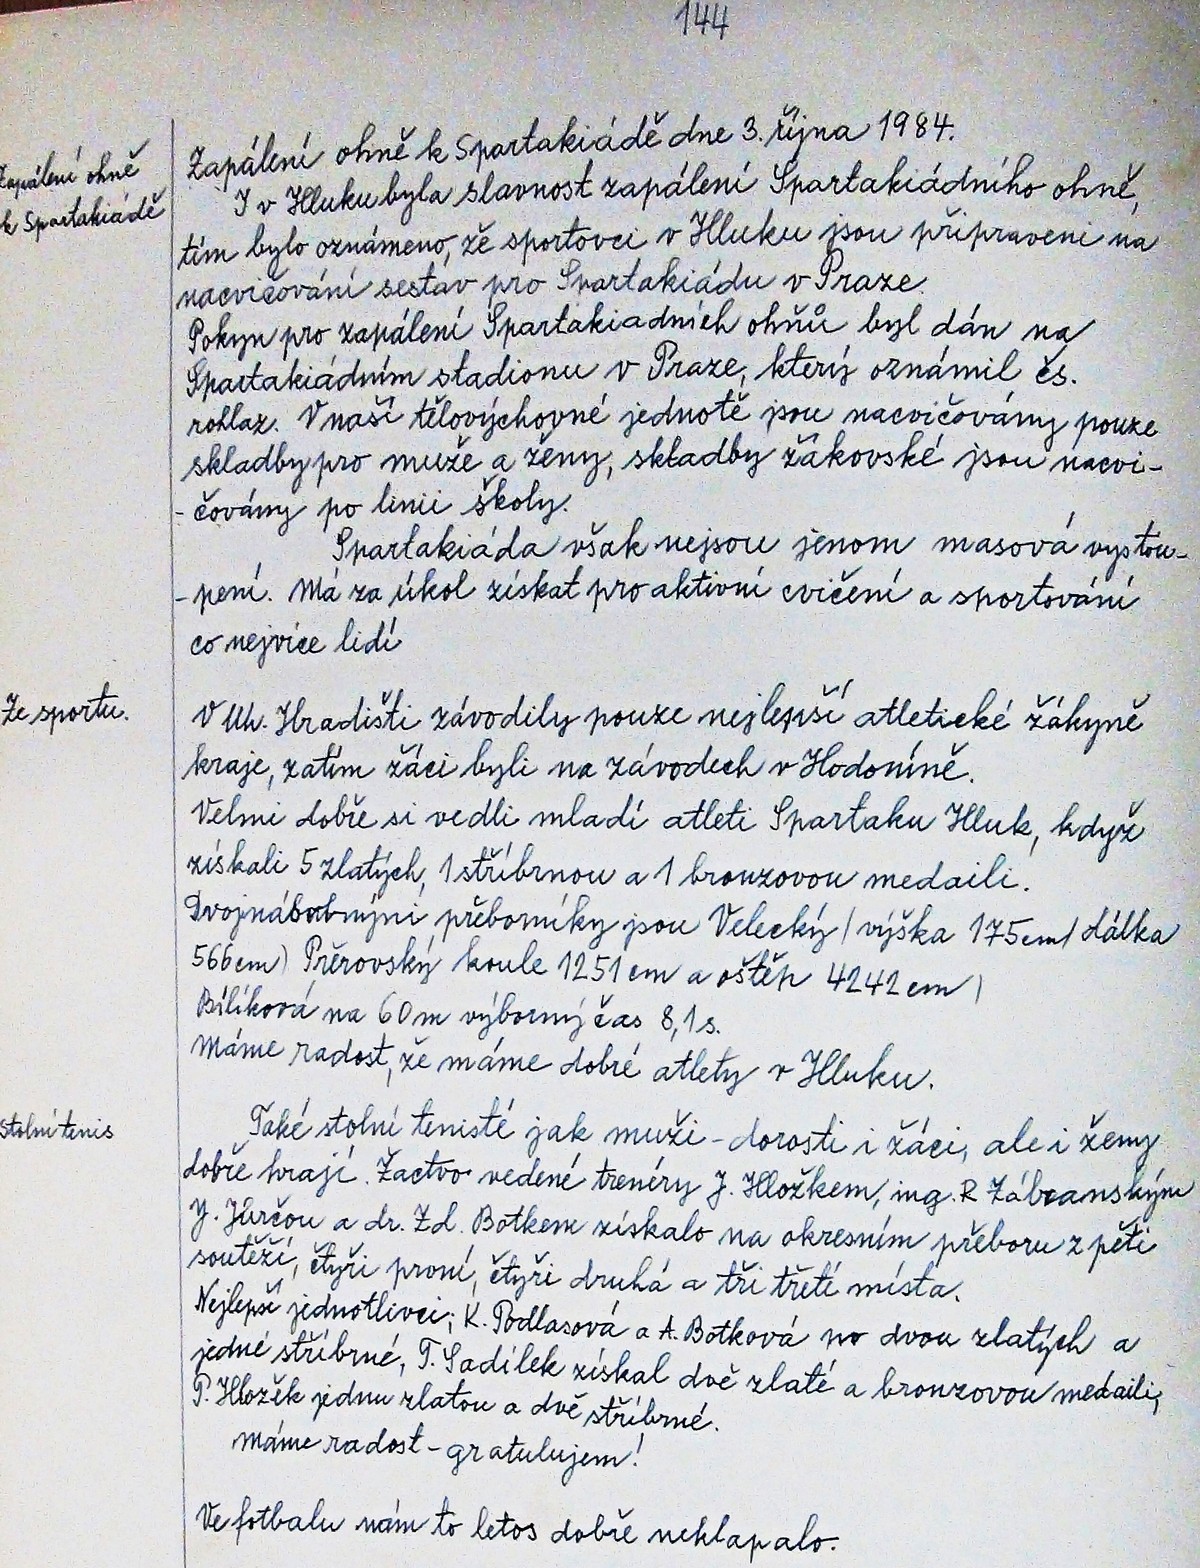 144
Zapálení ohně
k Spartakiádě
Zapálení ohně k Spartakiádě dne 3. října 1984.
I v Hluku byla slavnost zapálení Spartakiádního ohně,
tím bylo oznámeno, že sportovci v Hluku jsou připraveni na
nacvičování sestav pro Spartakiádu v Praze.
Pokyn pro zapálení Spartakiadních ohňů byl dán na
Spartakiádním stadionu v Praze, který oznámil čs.
rohlaz. V naší tělovýchovné jednotě jsou nacvičovány pouze
skladby pro muže a ženy, skladby žákovské jsou nacvi-
- čovány po linii školy.
Spartakiáda však nejsou jenom masová vystou-
- pení. Má za úkol získat pro aktivní cvičení a sportování
co nejvíce lidí
Ze sportu.
V Uh. Hradišti závodily pouze nejlepší atletické žákyně
kraje, zatím žáci byli na závodech v Hodoníně.
Velmi dobře si vedli mladí atleti Spartaku Hluk, když
získali 5 zlatých, 1 stříbrnou a 1 bronzovou medaili.
přeborníky jsou Velecký / výška 175cm/ dálka
566cm) Přerovský koule 1251 cm a oštěp 4242 cm)
Bilíková na 60m výborný čas 8,1s.
Máme radost, že máme dobré atlety v Hluku.
Stolní tenis
Také stolní tenisté jak muži - dorosti i žáci, ale i ženy
dobře hrají. Žactvo vedené trenéry J. Hložkem, ing. R Zábranským
J. Jurčou a dr. Zd. Botkem získalo na okresním přeboru z pěti
soutěží, čtyři první, čtyři druhá a tři třetí místa.
Nejlepší jednotlivci; K. Podlasová a A. Botková po dvou zlatých a
jedné stříbrné, T. Sadílek získal dvě zlaté a bronzovou medaili,
P. Hložěk jednu zlatou a dvě stříbrné.
Máme radost - gratulujem!
Ve fotbalu nám to letos dobře neklapalo.